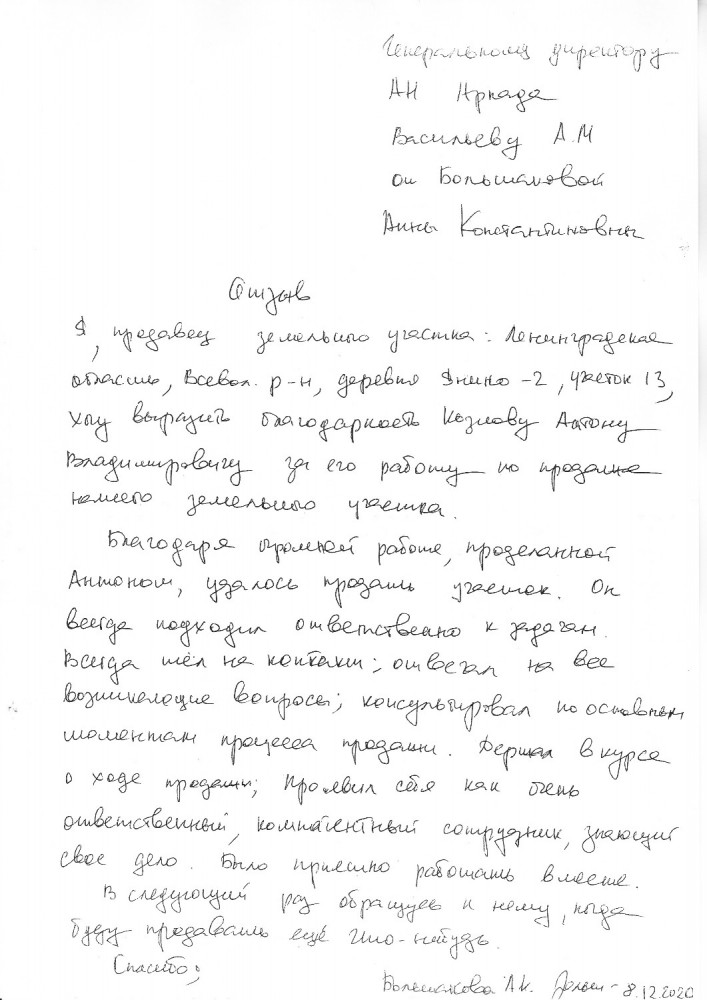 Генеральному директору
АН Аркада
Васильеву А.М
от Большаковой
Анны Константиновны
Отзыв
Я, продавец земельного участка: Ленинградская
область, Всевол. р-н, деревня Янино-2, участок 13,
хочу выразить благодарность Козлову Антону
Владимировичу за его работу по продаже
нашего земельного участка.
Благодаря огромной работе, проделанной
Антоном, удалось продать участок. Он
всегда подходил ответственно к задачам.
Всегда шёл на контакт; отвечал на все
возникающие вопросы; консультировал по основным
моментам процесса продажи. Держал в курсе
о ходе продажи; Проявил себя как очень
ответственный, компетентный сотрудник, знающий
свое дело. Было приятно работать вместе.
В следующий раз обращусь к нему, когда
буду продавать ещё что-нибудь.
Спасибо;
Большакова А.К. 8.12.2020